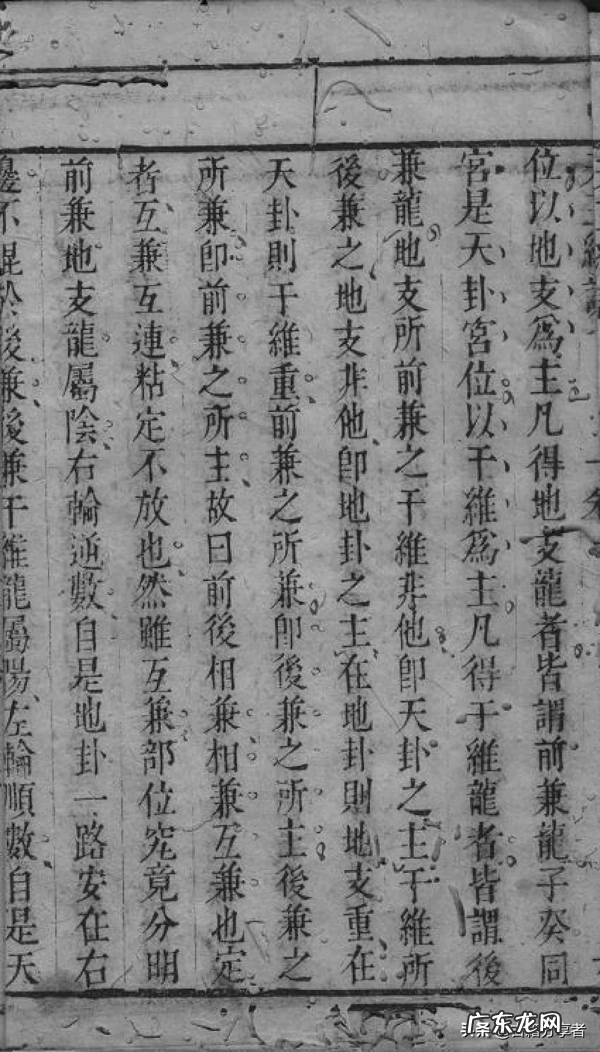 位以地支爲主凡得地支龍者皆謂前兼龍子癸同
宮是天卦宮位以干維爲主凡得干維龍者皆謂後
兼龍地支所前兼之干維非他卽天卦之主干維所
後兼之地支非他卽地卦之主在地卦則地支重在
天卦則干維重前兼之所兼卽後兼之所主後兼之
所兼卽前兼之所主故曰前後相兼相兼互兼也定
者互兼互連粘定不放也然雖互兼部位究竟分明
前兼地支龍屬陰右輪逆數自是地卦一路安在右
邊不混於後兼後兼干維龍屬陽左輪順數自是天
广东龙网